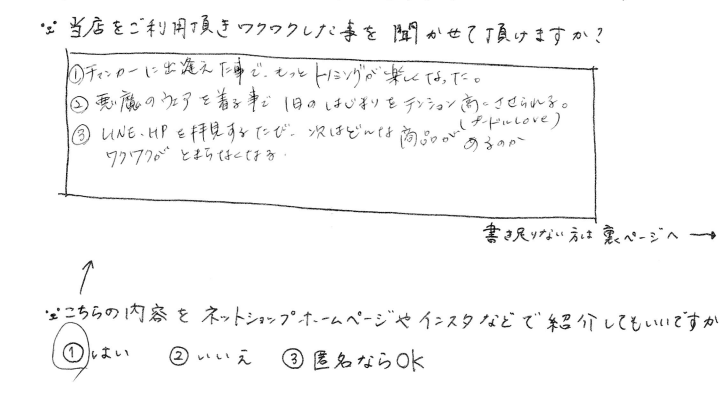 当店をご利用頂きワクワクした事を聞かせて頂けますか？
①チャンカーに出逢えた事で、もっとトリミングが楽しくなった。
②悪魔のウェアを着る事で1日のはじまりをテンション高くさせられる。
(プードルLOVE)
③LINE・HPを拝見するたび、次はどんな商品があるのか
ワクワクがとまらなくなる。
書き足りない方は裏ページへ→
こちらの内容をネットショップホームページやインスタなどで紹介してもいいですか
①はい ②いいえ ③匿名ならOK